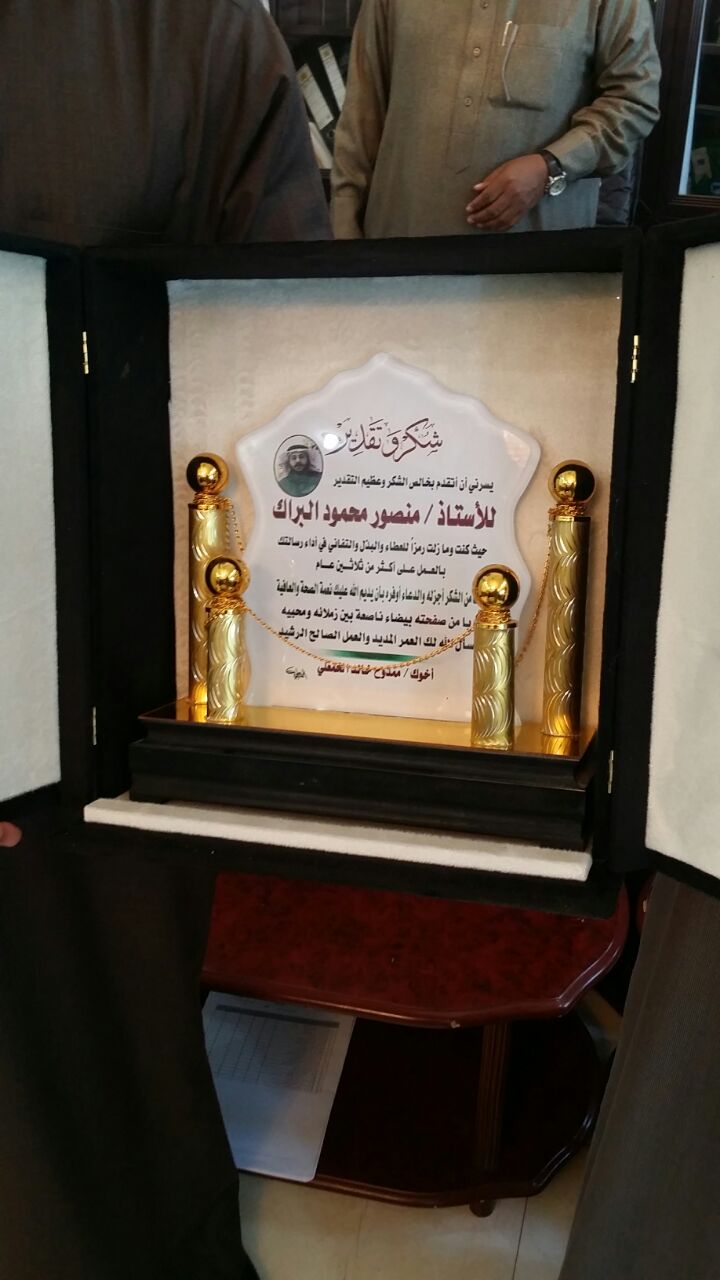 شكر وتقدير
يسرني أن أتقدم بخالص الشكر وعظيم التقدير
للأستاذ / منصور محمود البراك
حيث كنت وما زلت رمزاً للعطاء والبذل والتفاني في أداء رسالتك
بالعمل على أكثر من ثلاثين عام
من الشكر أجزله والدعاء أوفره بأن يديم الله عليك نعمة الصحة والعافية
يا من صفحته بيضاء ناصعة بين زملائه ومحبيه
الله لك العمر المديد والعمل الصالح الرشيد
أخوك / ممدوح خالد